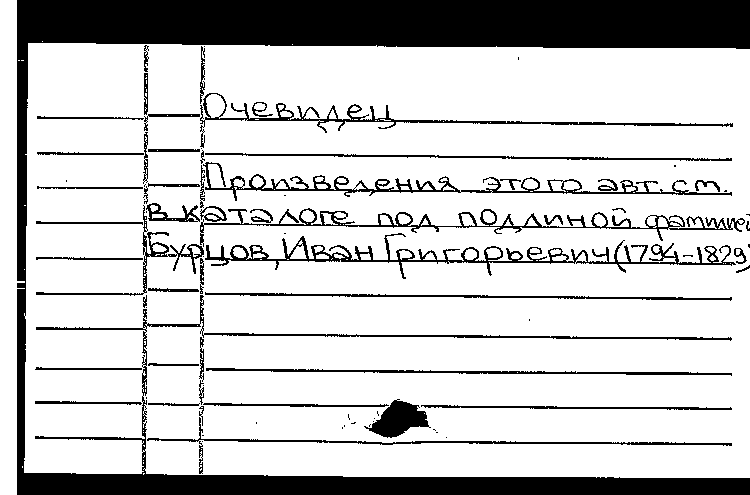 Очевидец
Произведения этого авт. см.
в каталоге под подлиной фамилией
Бурцов, Иван Григорьевич (1794-1829)